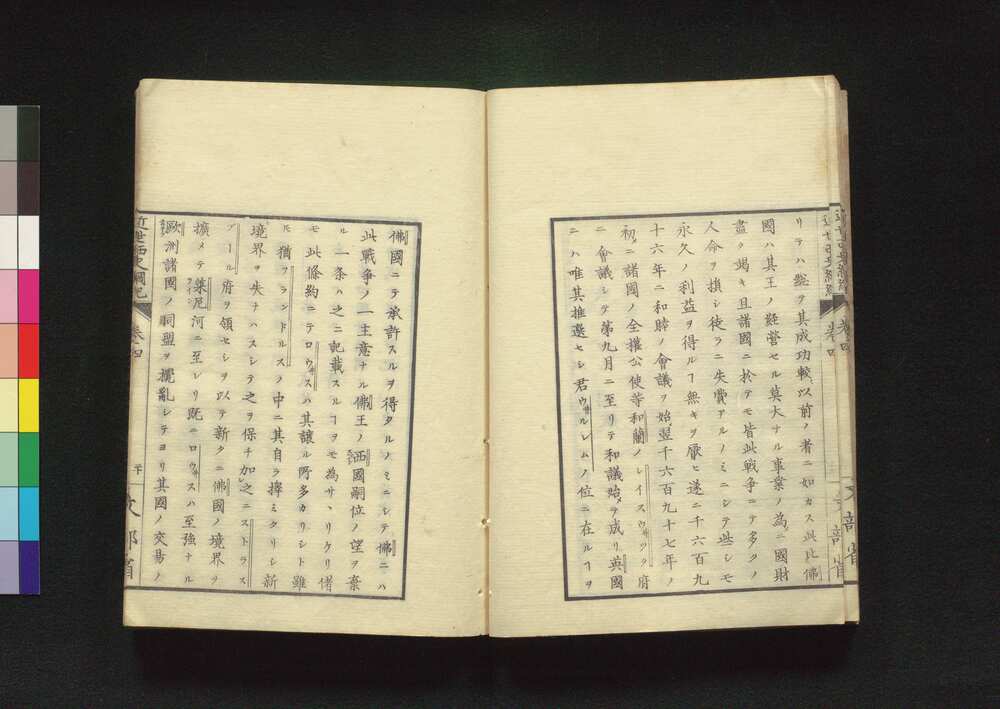 リテハ總テ其成功較〻以前ノ者ニ如カス此比佛
國ハ其王ノ經營セル莫大ナル事業ノ為ニ國財
盡ク竭キ且諸國ニ於テモ皆此戦争ニテ多クノ
人命ヲ損シ徒ラニ失費アルノミニシテ些シモ
永久ノ利益ヲ得ルヿ無キヲ厭ヒ遂ニ千六百九
十六年ニ和睦ノ會議ヲ始メ翌千六百九十七年ノ
初メニ諸國ノ全權公使等和蘭ノレイスウヰック府
ニ會議シテ第九月ニ至リテ和議始メテ成リ英國
ニハ唯其推選セシ君ウヰルレムノ位ニ在ルヿヲ
近世西史綱紀
卷四
文部省
佛國ニテ承許スルヲ得タルノミニシテ佛ニハ
此戰争ノ一主意ナル佛王ノ西國嗣位ノ望ヲ棄
ル一条ハ之ニ記載スルヿヲモ為サヽリケリ偖
モ此條約ニテロウヰスハ其讓ル所多カリシト雖
𪜈猶フランドルスノ中ニ其自ラ擇ミタリシ新
境界ヲ失ナハスシテ之ヲ保チ加之ニストラス
ブール府ヲ領セシヲ以テ新タニ佛國ノ境界ヲ
擴メテ萊尼河ニ至レリ既ニロウヰスハ至強ナル
歐洲諸國ノ同盟ヲ攪亂シテヨリ其國ノ交易ノ
近世西史綱紀
卷四
二十
文部省